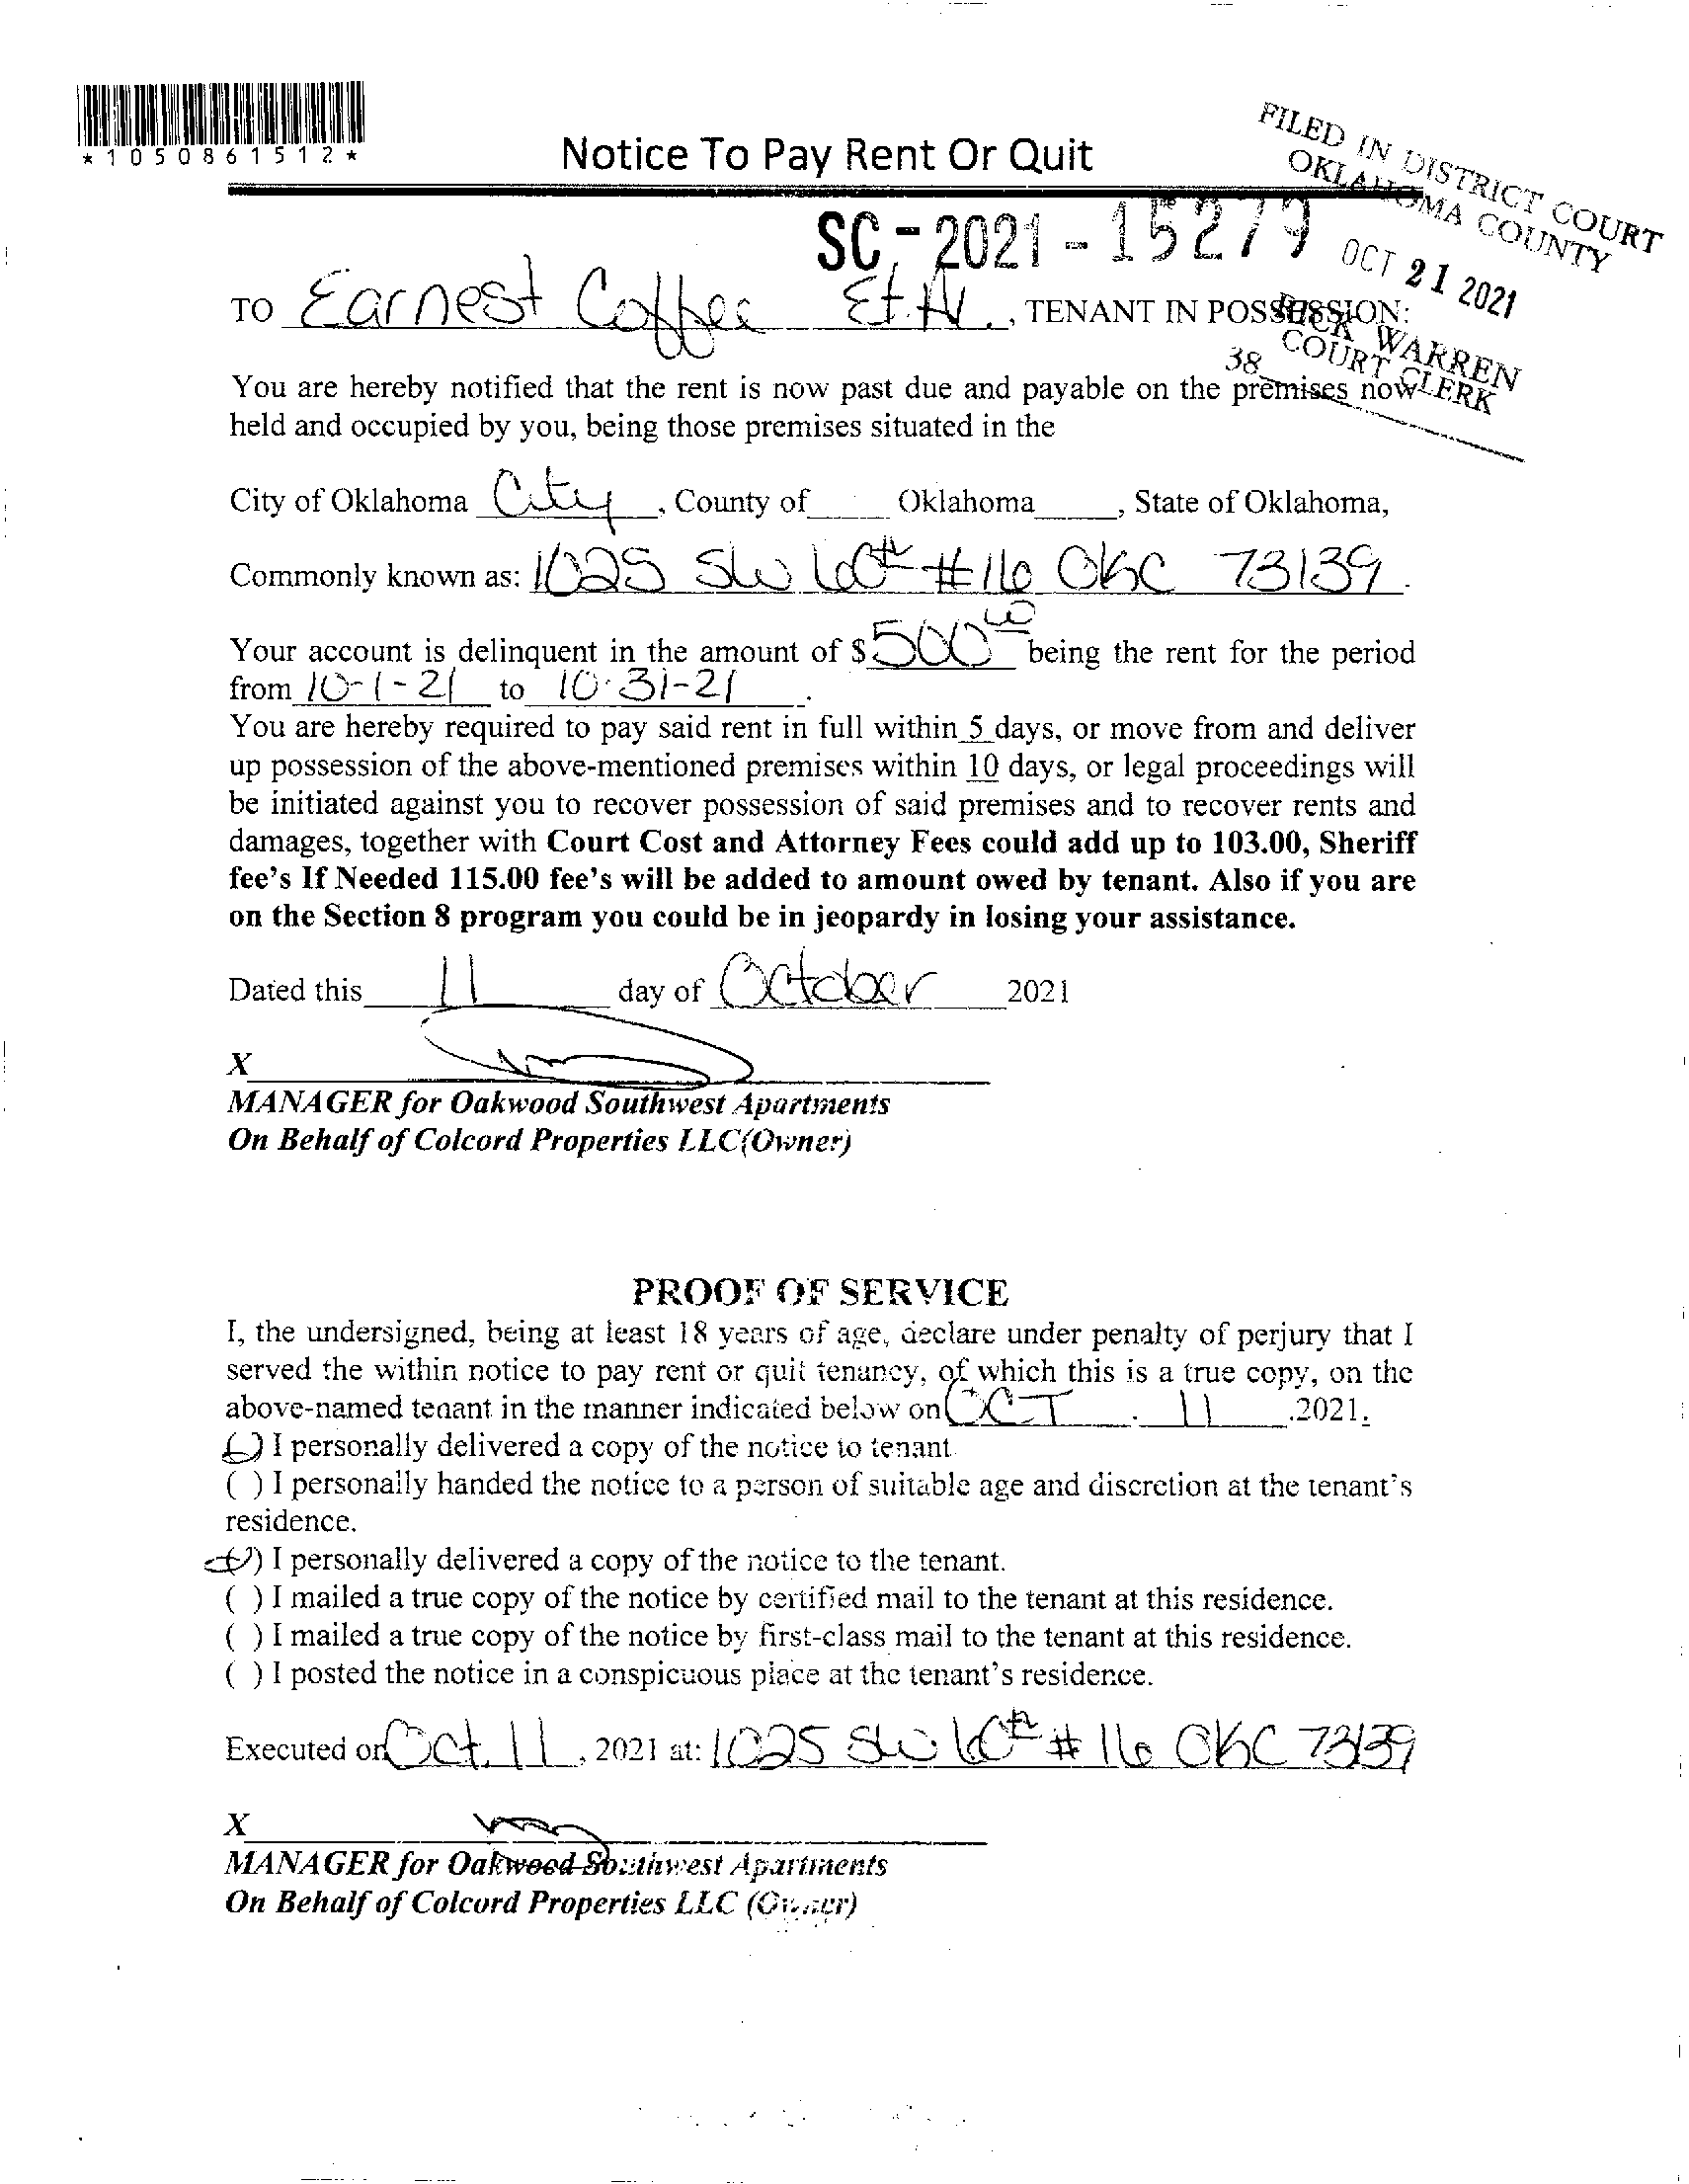 *1050861512*
Notice To Pay Rent Or Quit
FILED IN DISTRICT COURT
OKLAHOMA COUNTY
SC-2021-15279
OCT 21 2021
TO Earnest Coffee Et Al., TENANT IN POSSESSION:
RICK WARREN
COURT CLERK
38
You are hereby notified that the rent is now past due and payable on the premises now
held and occupied by you, being those premises situated in the
City of Oklahoma City, County of Oklahoma, State of Oklahoma,
Commonly known as: 1025 SW 60th #116 OKC 73139.
Your account is delinquent in the amount of $500 00 being the rent for the period
from 10-1-21 to 10-31-21.
You are hereby required to pay said rent in full within 5 days, or move from and deliver
up possession of the above-mentioned premises within 10 days, or legal proceedings will
be initiated against you to recover possession of said premises and to recover rents and
damages, together with Court Cost and Attorney Fees could add up to 103.00, Sheriff
fee's If Needed 115.00 fee's will be added to amount owed by tenant. Also if you are
on the Section 8 program you could be in jeopardy in losing your assistance.
Dated this 11 day of October 2021
X
MANAGER for Oakwood Southwest Apartments
On Behalf of Colcord Properties LLC(Owner)
PROOF OF SERVICE
I, the undersigned, being at least 18 years of age, declare under penalty of perjury that I
served the within notice to pay rent or quit tenancy, of which this is a true copy, on the
above-named tenant in the manner indicated below on OCT. 11 .2021.
( ) I personally delivered a copy of the notice to tenant
( ) I personally handed the notice to a person of suitable age and discretion at the tenant's
residence.
( ) I personally delivered a copy of the notice to the tenant.
( ) I mailed a true copy of the notice by certified mail to the tenant at this residence.
( ) I mailed a true copy of the notice by first-class mail to the tenant at this residence.
( ) I posted the notice in a conspicuous place at the tenant's residence.
Executed on Oct. 11, 2021 at: 1025 SW 60th #116 OKC 73139
X
MANAGER for Oakwood Southwest Apartments
On Behalf of Colcord Properties LLC (Owner)